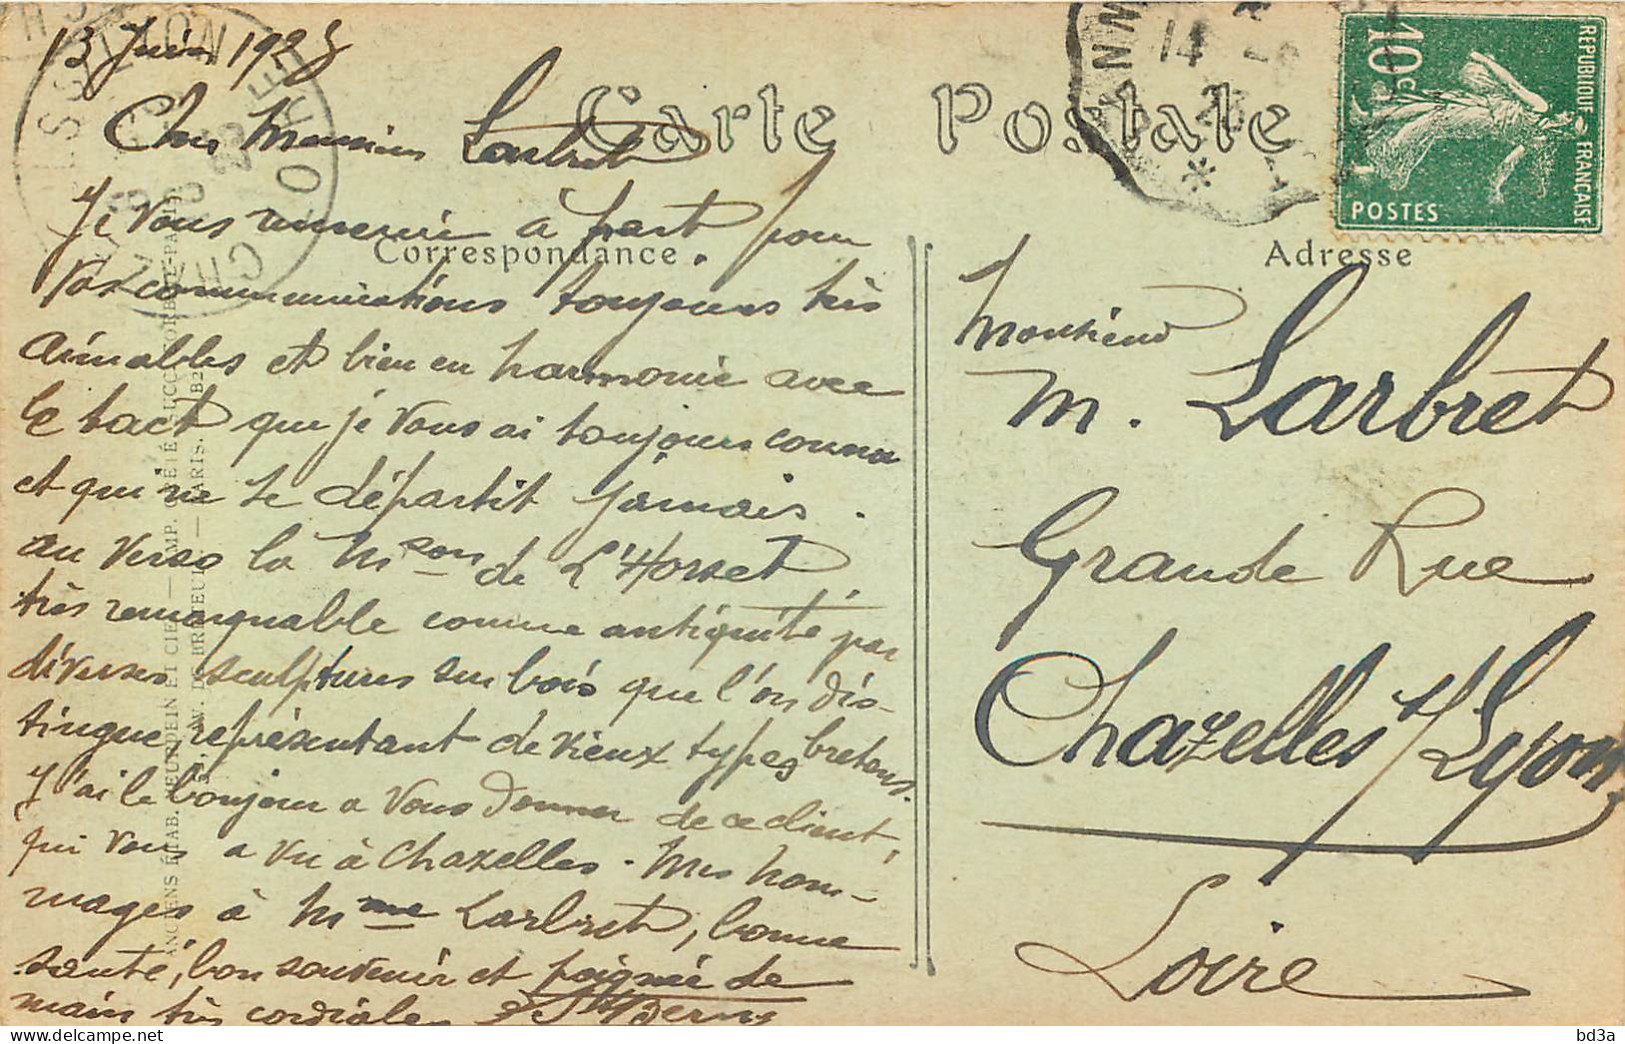 13 Juin 1925
Carte Postale
Cher Monsieur Larbret
Je vous remercie à part pour
Correspondance.
vos communications toujours très
aimables et bien en harmonie avec
le tact que je vous ai toujours connu
et qui ne se départit jamais.
au verso la Mson de L'Horset
très remarquable comme antiquité, par
diverses sculptures sur bois que l'on dis-
tingue représentant de vieux types bretons.
J'ai le bonjour a vous donner de ce client,
qui vous a vu à Chazelles. Mes hom-
mages à Mme Larbret, bonne
santé, bon souvenir et poignée de
main très cordiale
RÉPUBLIQUE FRANÇAISE
10c
POSTES
14
25
Adresse
Monsieur
M. Larbret
Grande Rue
Chazelles s/Lyon
Loire
ANCIENS ÉTAB. NEURDEIN ET CIE. — IMP.
AV. DE BRETEUIL — PARIS.
LOIRE
bd3a